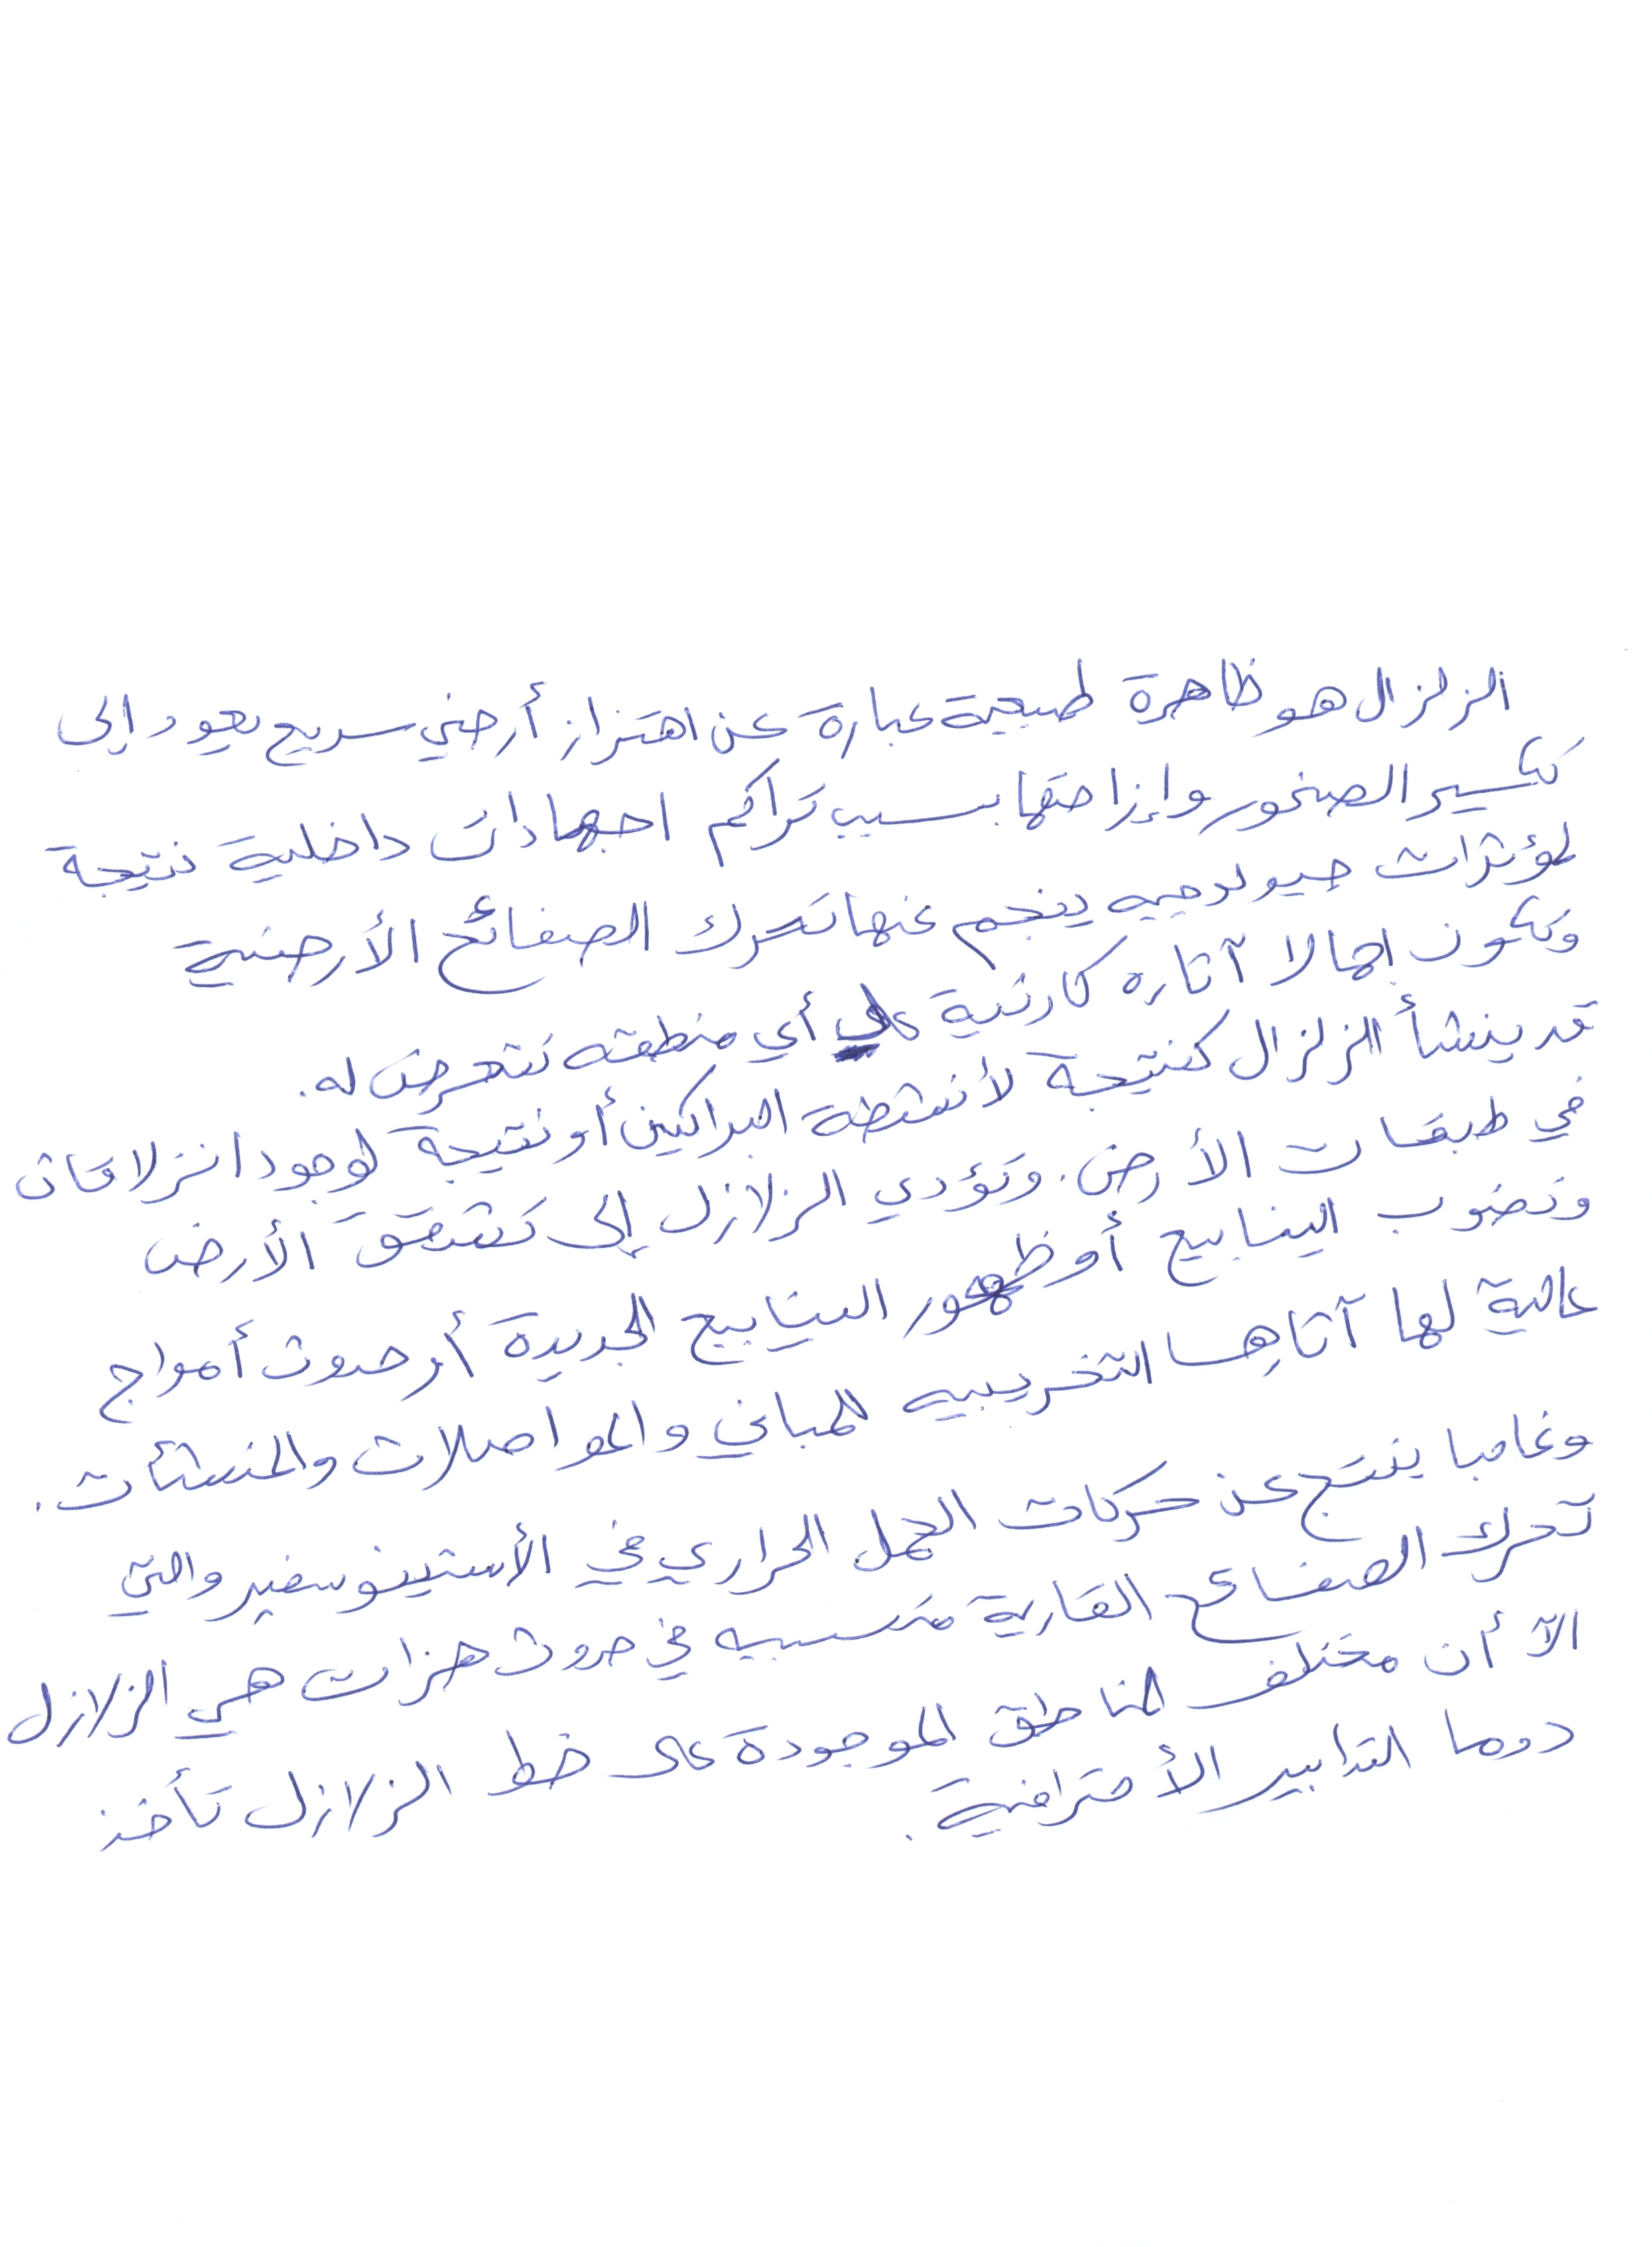 الزلزال هو ظاهرة طبيعية عبارة عن اهتزاز أرضي سريع يعود إلى
تكسير الصخور وإزاحتها بسبب تراكم اجهادات داخلية نتيجة
لمؤثرات جيولوجيه ينجم عنها تحرك الصفائح الأرضية
وتكون اجمالا آثاره كارثية على أي منطقته تتعرض له.
قد ينشأ الزلزال كنتيجة لأنشطة البراكين أو نتيجة لوجود انزلاقات
في طبقات الأرض. وتؤدي الزلازل إلى تشقق الأرض
ونضوب الينابيع أو ظهور الينابيع الجديدة أو حدوث أمواج
عالية لها آثارها التخريبيه للمباني والمواصلات والمنشئات.
وغالبا ينتج عن حركات الحمل الحراري في الأستينوسفير والتي
تحرك الصفائح القارية متسببه في حدوث هزات هي الزلازل
الآ أن مختلف المناطق الموجودة على خط الزلازل تأخذ
دوما التدابير الأحترافية.